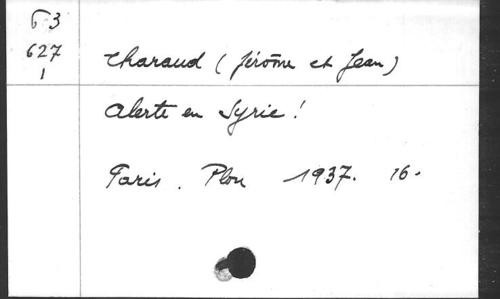 G 3
627
1
Charaud (Jérôme et Jean)
Alerte en Syrie !
Paris. Plon 1937. 16.